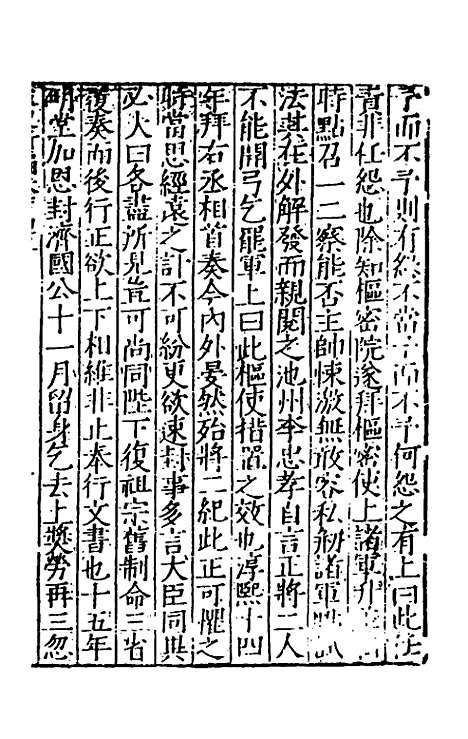 予而不予則有怨不當予而不予何怨之有上曰此任
責非任怨也除知樞密院遂拜樞密使上諸軍升差
時點召一二察能否主帥悚激無敢容私初諸軍 試
法其在外解發而親閱之池州李忠孝自言正將二人
不能開弓乞罷軍上曰此樞使措置之效也淳熙十四
年拜右丞相首奏今內外晏然殆將二紀此正可懼之
時當思經遠之計不可紛更欲速封事多言大臣同異
必大曰各盡所見豈可尚同陛下復祖宗舊制命三省
復奏而後行正欲上下相維非止奉行文書也十五年
明堂加恩封濟國公十一月留身乞去上奬勞再三忽